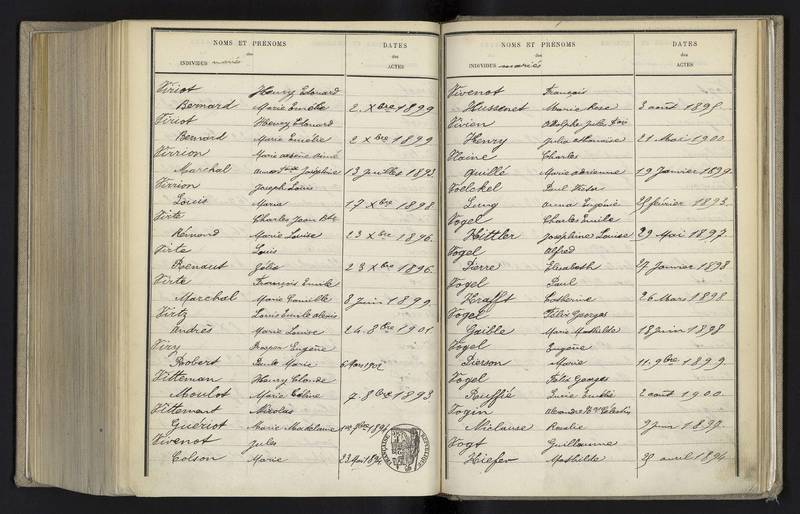 NOMS ET PRÉNOMS
des
INDIVIDUS mariés
DATES
des
ACTES
Viriot Henry Edouard
Bernard Marie Emélie 2. Xbre 1899
Viriot Henry Edouard
Bernard Marie Emélie 2 Xbre 1899
Virrion Marie arsène aimé
Marchal Joséphine 13 Juillet 1893
Virrion Joseph Louis
Louis Maria 17 Xbre 1898
Virte Charles Jean Bte
Rémond Marie Louise 23 Xbre 1896.
Virte Louis
Renaut Zélie 23 Xbre 1896.
Virte François Emile
Marchal Marie Camille 8 Juin 1899.
Virtz Louis Emile alexis
Andrès Marie Louise 24. 8bre 1901
Viry Prosper Eugène
Robert Paule Marie 6 Nov 1902
Vitteman Henry Claude
Moulot Marie Céline 7. 8bre 1893
Vittemant Nicolas
Guériot Marie Madelaine
Vivenot Jules
Colson Marie 23 Mai 1894
NOMS ET PRÉNOMS
des
INDIVIDUS mariés
DATES
des
ACTES
Vivenot François
Hussenet Marie Rose 3 août 1895.
Vivien Adolphe Jules
Henry Julie 21 Mai 1900
Vlaine Charles
Guillé Marie adrienne 19 Janvier 1899.
Voelckel Paul Victor
Lung anna Eugénie février 1893.
Vogel Charles Emile
Hittler Joséphine Louise 29 Mai 1897.
Vogel Alfred
Pierre Elisabeth 27 Janvier 1898
Vogel Paul
Krafft Catherine 26 Mars 1898.
Vogel Félix Georges
Gaille Marie Mathilde 18 Juin 1898
Vogel Eugène
Pierson Marie 11. 9bre 1899.
Vogel Félix Georges
Rouffié Lucie Emélie 2 août 1900.
Vogin Alexandre Célestin
Mirlause Rosalie Juin 1892.
Vogt Guillaume
Kiefer Mathilde avril 1894